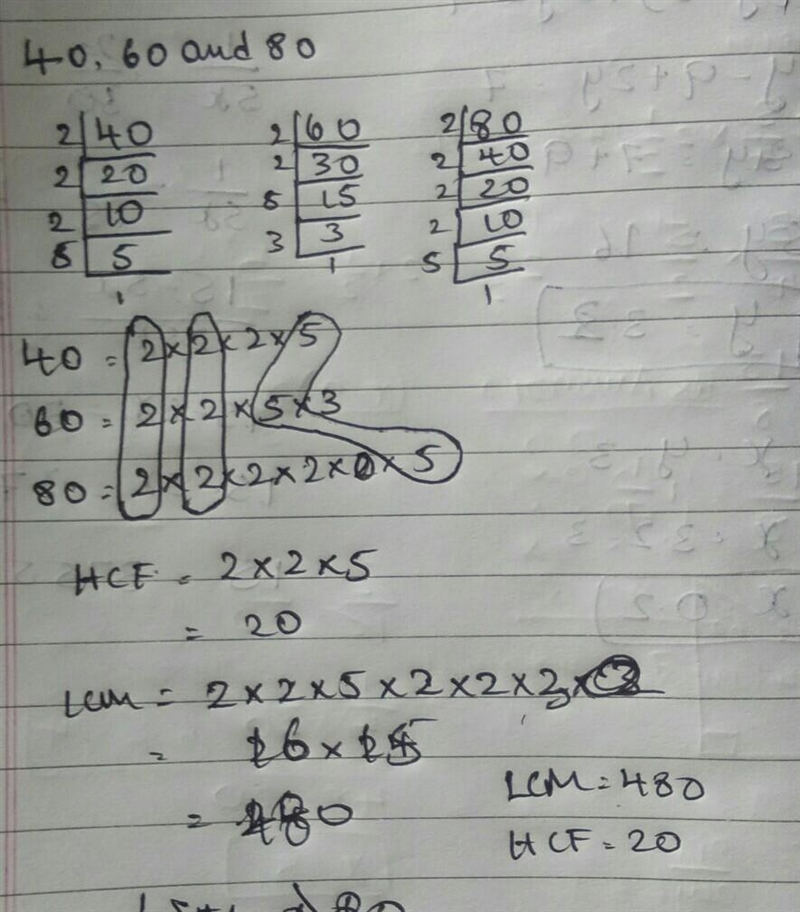 40, 60 and 80
2 40
2 20
2 10
5 5
1
2 60
2 30
5 15
3 3
1
2 80
2 40
2 20
2 10
5 5
1
40 = 2 × 2 × 2 × 5
60 = 2 × 2 × 5 × 3
80 = 2 × 2 × 2 × 2 × 5
HCF = 2 × 2 × 5
= 20
LCM = 2 × 2 × 5 × 2 × 2 × 3
= 16 × 15
= 480
LCM = 480
HCF = 20